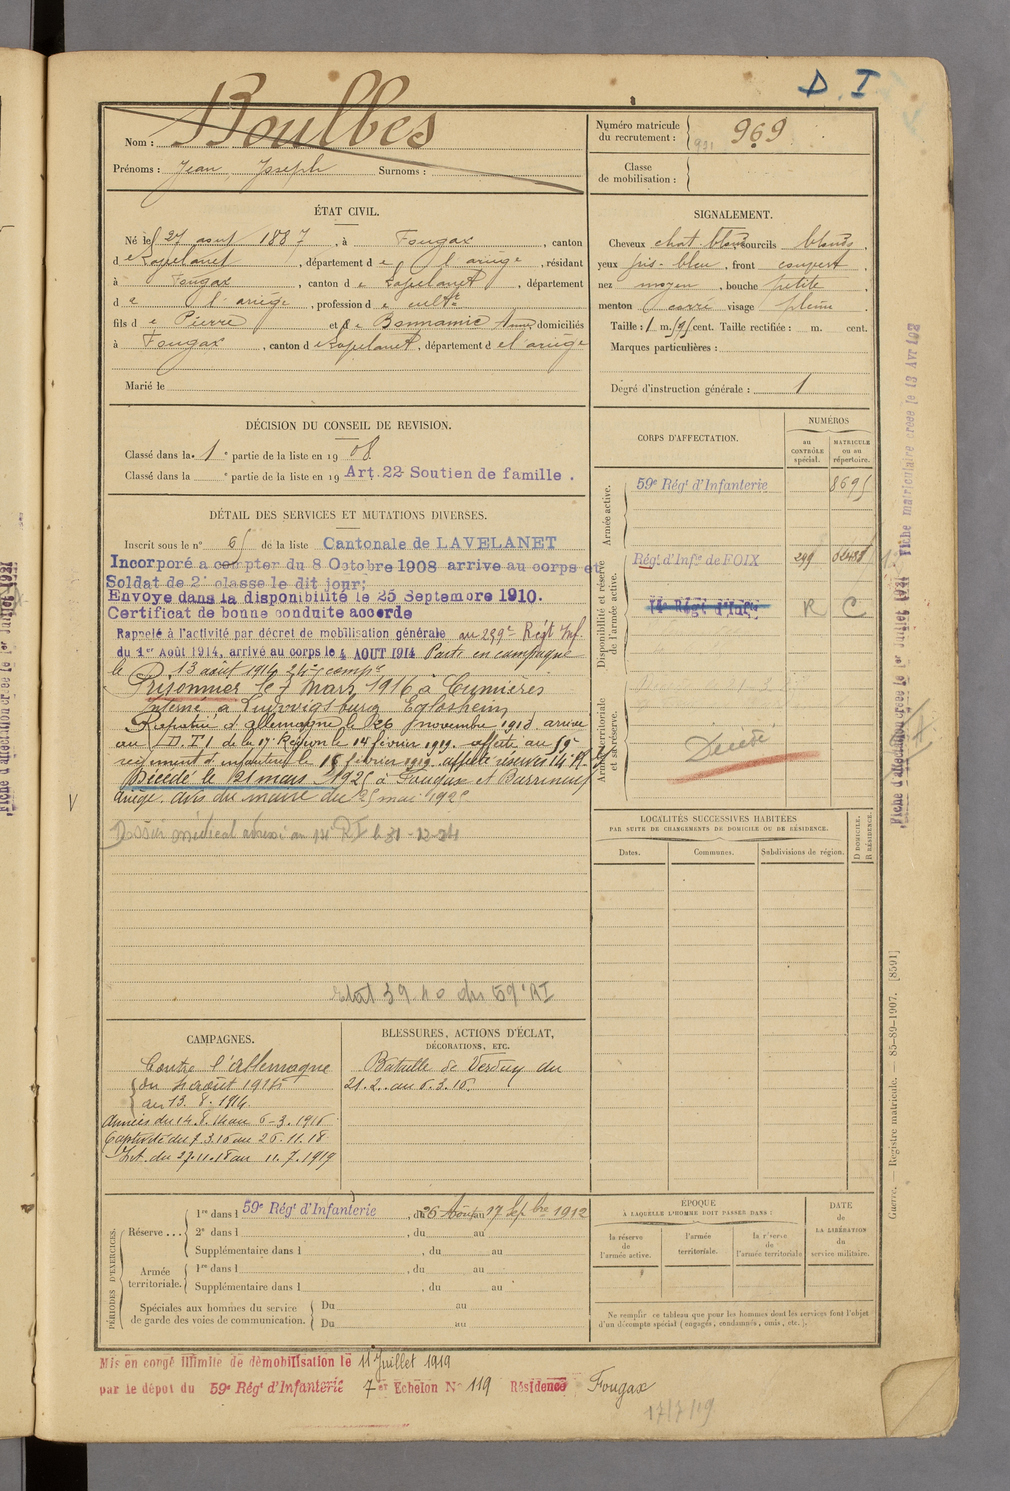 D. I
Nom : Boulbès
Prénoms : Jean Joseph Surnoms :
Numéro matricule du recrutement : 969
921
Classe de mobilisation :
ÉTAT CIVIL.
Né le 27 aout 1887, à Fougax, canton
de Lavelanet, département de l'ariège, résidant
à Fougax, canton de Lavelanet, département
de l'ariège, profession de cultr
fils de Pierre et de Bonnamic Anne domiciliés
à Fougax, canton de Lavelanet, département de l'ariège
Marié le
SIGNALEMENT.
Cheveux chat. blond sourcils blonds
yeux gris-bleu, front couvert
nez moyen, bouche petite
menton carré visage plein
Taille : 1 m. 59 cent. Taille rectifiée : m. cent.
Marques particulières :
Degré d'instruction générale : 1
DÉCISION DU CONSEIL DE REVISION.
Classé dans la 1e partie de la liste en 1908
Classé dans la e partie de la liste en 19 Art. 22 Soutien de famille.
DÉTAIL DES SERVICES ET MUTATIONS DIVERSES.
Inscrit sous le n° 65 de la liste Cantonale de LAVELANET
Incorporé a compter du 8 Octobre 1908 arrive au corps et
Soldat de 2e classe le dit jour;
Envoye dans la disponibilité le 25 Septembre 1910.
Certificat de bonne conduite accorde
Rappelé à l'activité par décret de mobilisation générale au 259e Régt Inf.
du 1er Août 1914, arrivé au corps le 4 AOUT 1914 Parti en campagne
le 13 août 1914 24e compie
Prisonnier le 7 mars 1916 à Cumières
Interné à Ludwigsburg Eglosheim
Rapatrié d'allemagne le 26 novembre 1918 arrivé
au D.T.I de la 17e Région le 14 février 1919. affecté au 59e
régiment d'infanterie le 16 février 1919. affecté réserves 14e R.I.
Décédé le 21 mars 1925 à Fougax et Barrineuf
ariège. avis du maire du 25 mai 1925
Dossier médical adressé au 14e RI le 31-12-24
etat 39.40 du 59e RI
CORPS D'AFFECTATION.
NUMÉROS
au CONTRÔLE spécial.
MATRICULE ou au répertoire.
Armée active.
59e Régt d'Infanterie 8695
Disponibilité et réserve de l'armée active.
Régt d'Infie de FOIX 299
14e Régt d'Infie R C
Armée territoriale et sa réserve.
Décédé
LOCALITÉS SUCCESSIVES HABITÉES
PAR SUITE DE CHANGEMENTS DE DOMICILE OU DE RÉSIDENCE.
Dates. Communes. Subdivisions de région.
D DOMICILE.
R RÉSIDENCE.
CAMPAGNES.
Contre l'allemagne
du 4 août 1914
au 13. 8. 1914
Armées du 14. 8. 14 au 6-3. 1916
Captivité du 7.3.16 au 26. 11. 18
Int. du 27.11.18 au 11. 7. 1919
BLESSURES, ACTIONS D'ÉCLAT,
DÉCORATIONS, ETC.
Bataille de Verdun du
21. 2. au 6. 3. 16.
PÉRIODES D'EXERCICES.
Réserve ...
1re dans l 59e Régt d'Infanterie, du 26 Août au 17 Sepbre 1912
2e dans l , du au
Supplémentaire dans l , du au
Armée territoriale.
1re dans l , du au
Supplémentaire dans l , du au
Spéciales aux hommes du service de garde des voies de communication.
Du au
Du au
EPOQUE
À LAQUELLE L'HOMME DOIT PASSER DANS :
la réserve de l'armée active.
l'armée territoriale.
la réserve de l'armée territoriale
DATE de LA LIBÉRATION du service militaire.
Ne remplir ce tableau que pour les hommes dont les services font l'objet
d'un décompte spécial (engagés, condamnés, omis, etc.).
Mis en congé illimité de démobilisation le 11 Juillet 1919
par le dépot du 59e Régt d'Infanterie 7er Echelon N° 119 Résidence Fougax
17/7/19
Guerre. — Registre matricule. — 85-89-1907. [8591]
Fiche d'affection créée le 1er Juillet 1921
Fiche matriculaire créée le 13 Avr